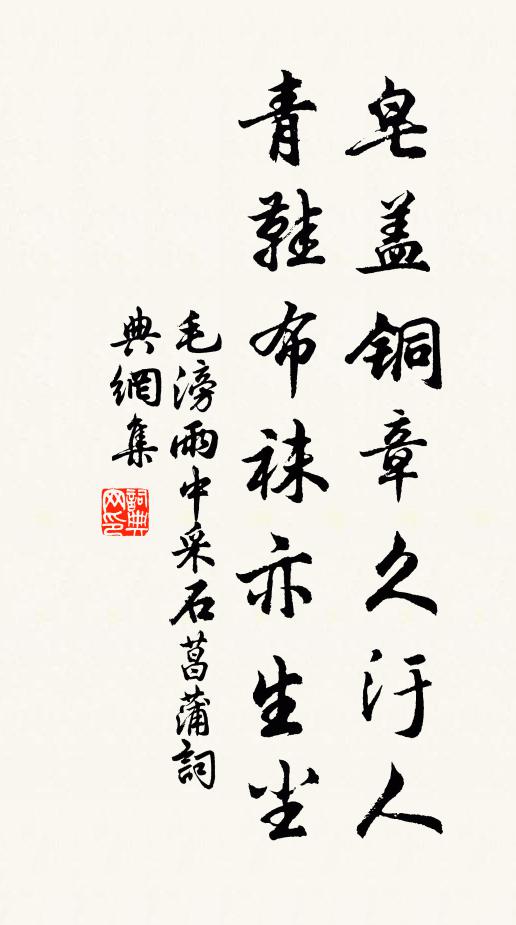 皂盖铜章久汙人
青鞋布袜亦生尘
毛滂雨中采石菖蒲詞
典網集
詞典网印